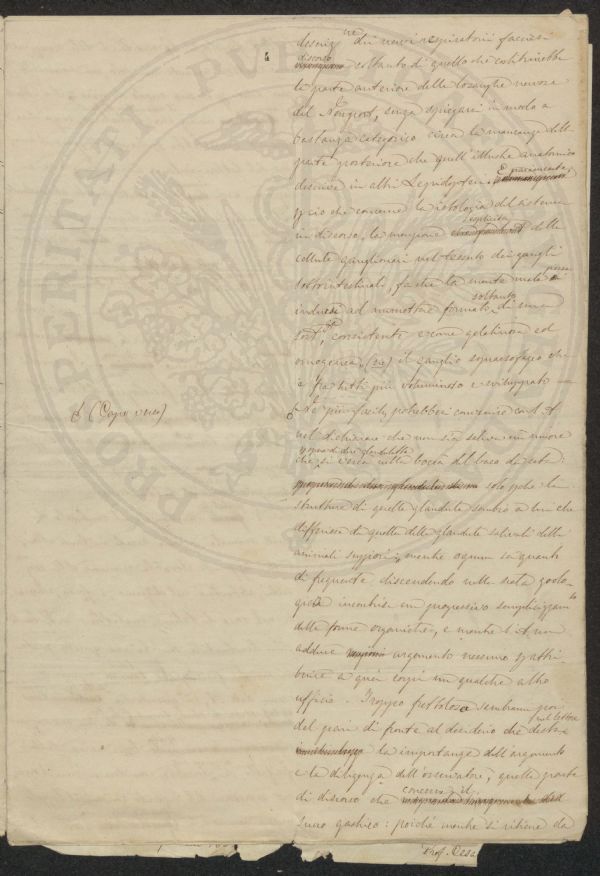 descriz.ne dei nervi respiratorii facciasi
discorso soltanto di quello che costituirebbe
la parte anteriore delle losanghe nervose
del Newport, senza spiegarsi in modo a
bastanza categorico circa la mancanza della
parte posteriore che quell'illustre anatomico
descrive in altri Lepidopteri. E parimente,
per ciò che concerne la istologia del sistema
in discorso, la menzione esplicita delle
cellule ganglionari nel tessuto dei gangli
sottointestinali, fa che la mente male possa
indursi ad ammettere formato soltanto di una
sost.za consistente come gelatinosa ed
omogenea (sic) il ganglio sopraesofageo che
è fra tutti più voluminoso e sviluppato —
S (Capo verso)
Nè più facile potrebbesi convenire coll'A
nel dichiarare che non sia saliva un umore
che si versa nella bocca del baco da seta:
solo perchè la
struttura di quelle glandule sembra a lui che
differisca da quella delle glandule salivali delli
animali superiori; mentre ognun sa quanto
di frequente, discendendo nella scala zoolo-
gica incontrisi un progressivo semplicizzam.to
delle forme organiche, e mentre l'A. non
adduce argomento nessuno per attri-
buire a quei corpi un qualche altro
ufficio. Troppo frettolosa sembrami poi
del pari di fronte al desiderio che desta nel lettore
la importanza dell'argomento
e la diligenza dell'osservatore, quella parte
di discorso che concerne il
succo gastrico: poichè mentre si ritiene da
Prof. Cesa